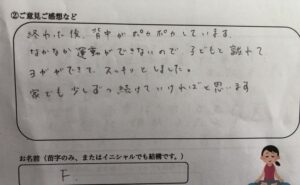 ②ご意見ご感想など
終わった後、背中がポカポカしています。
なかなか運動ができないので、子どもと離れて
ヨガができて、スッキリしました。
家でも少しずつ続けていければと思います
お名前(苗字のみ、またはイニシャルでも結構です。)
F.